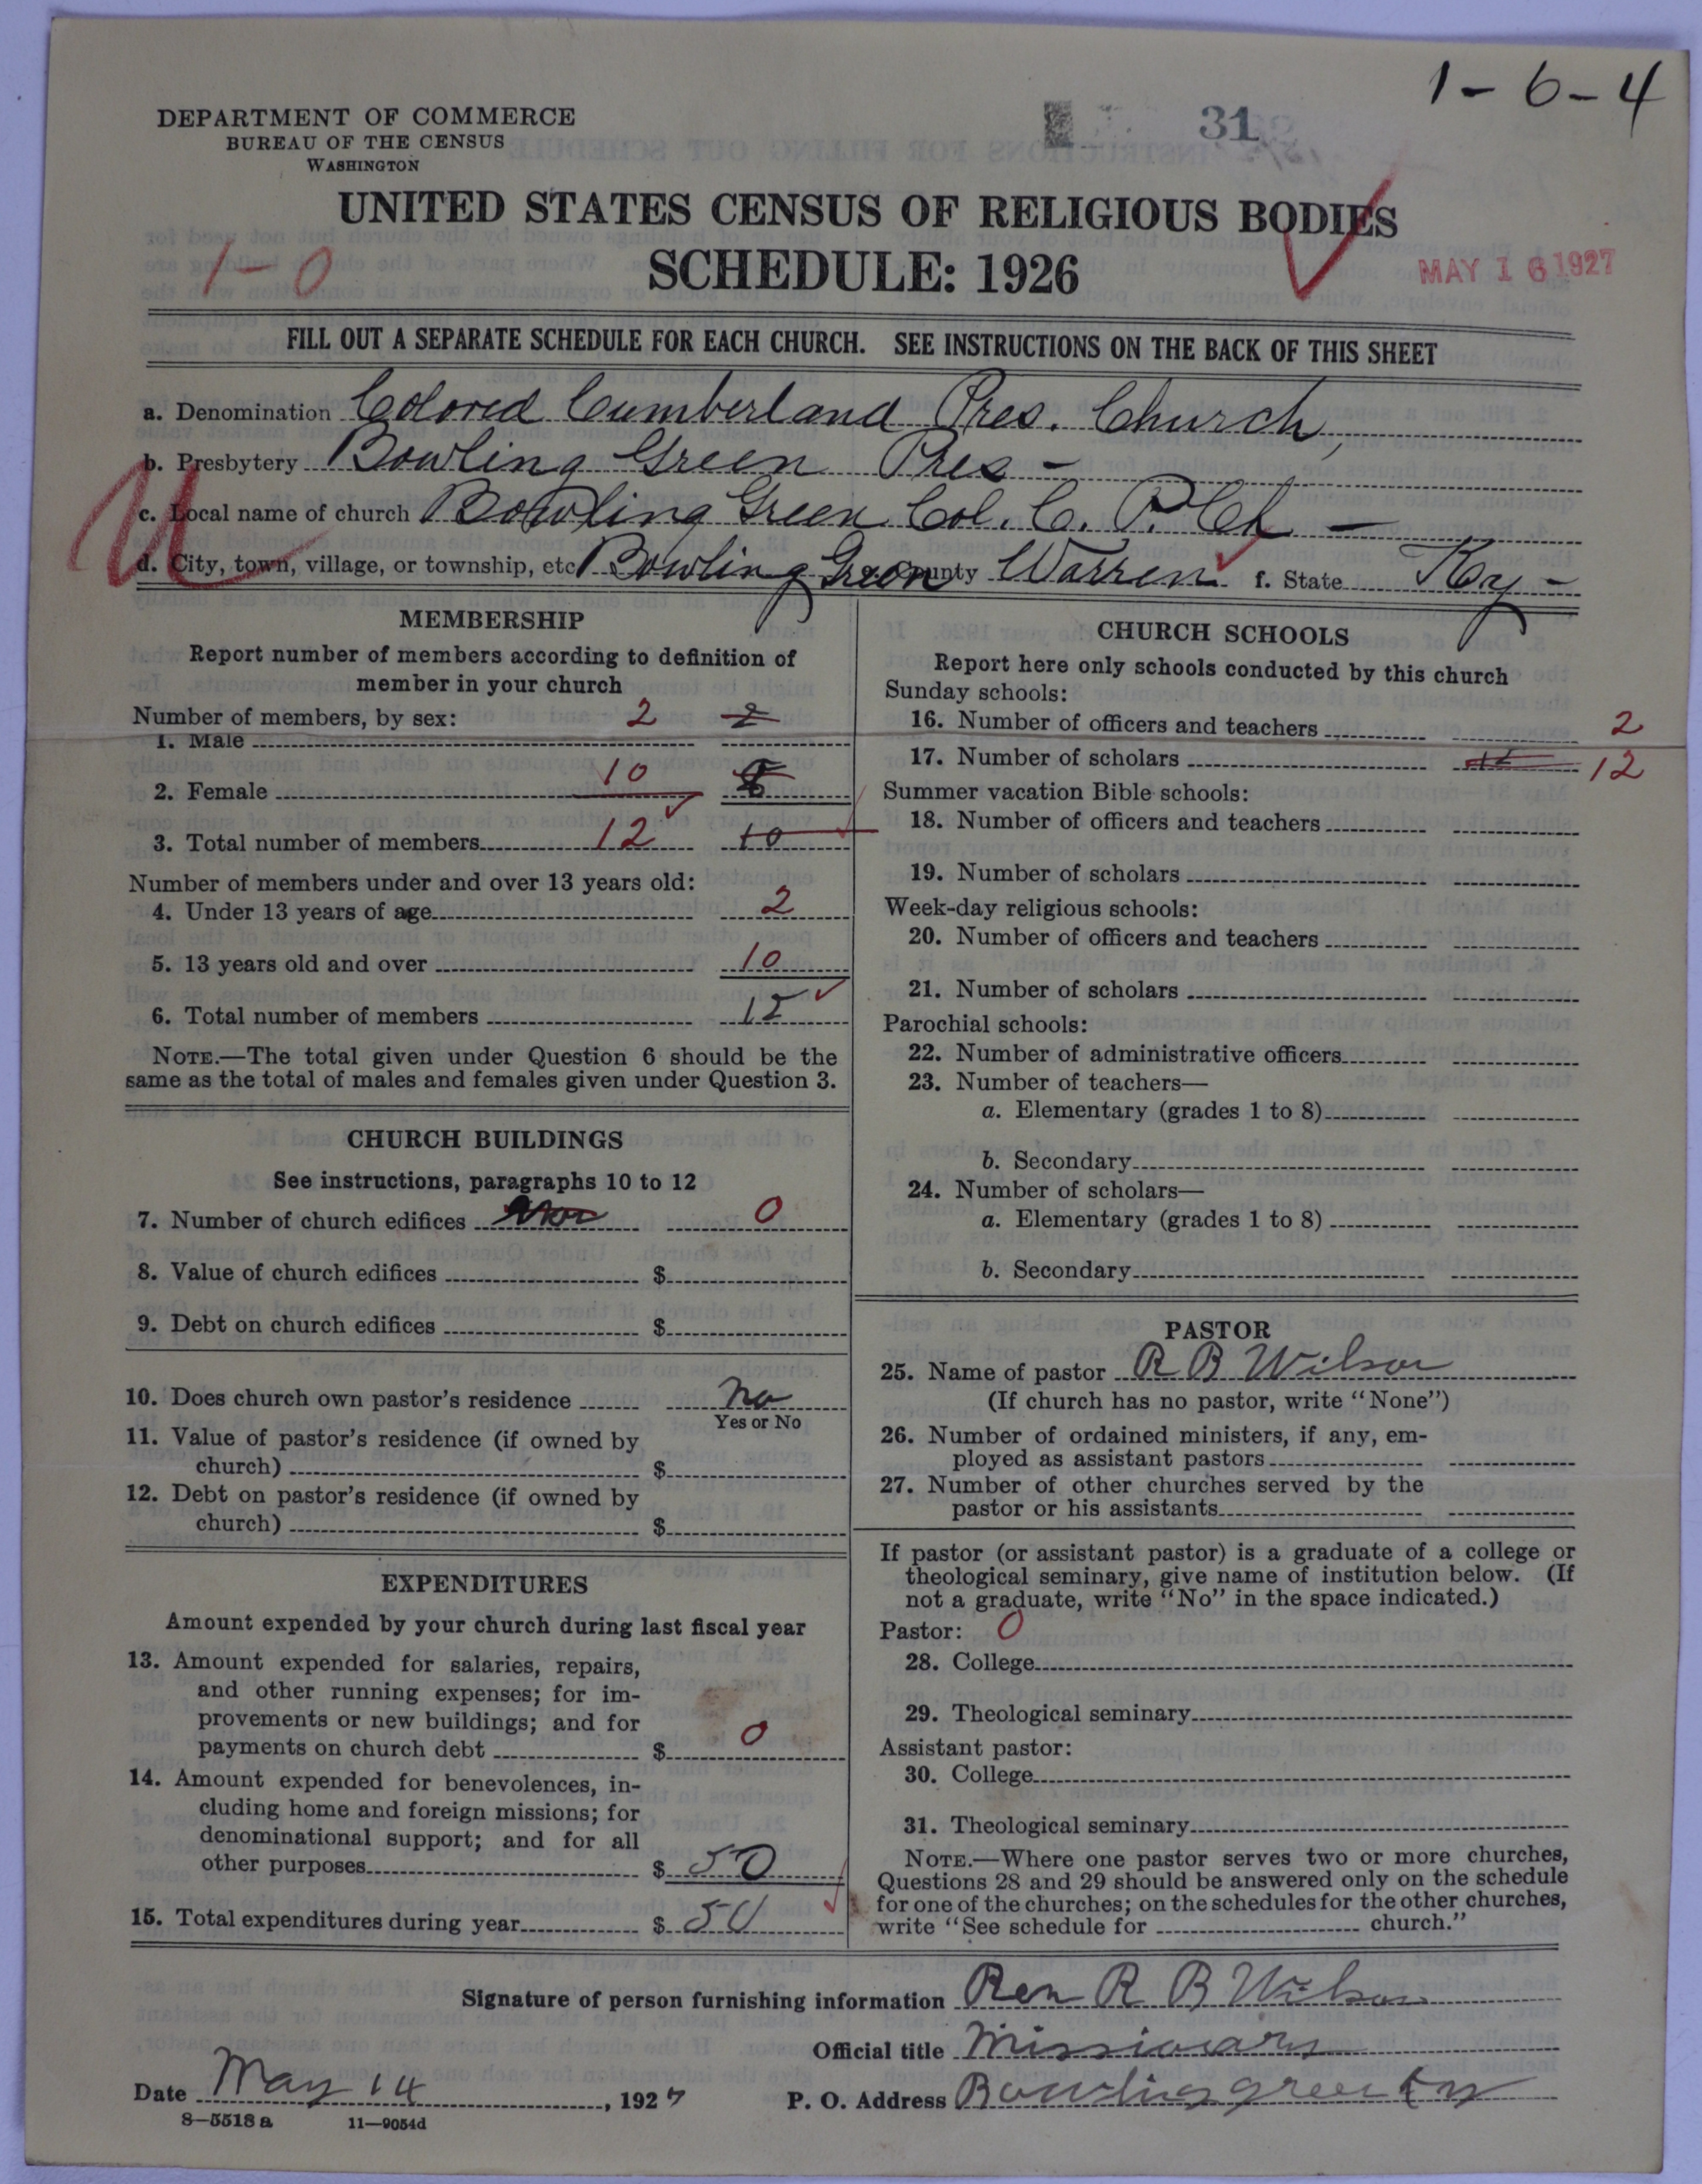 1-6-4
DEPARTMENT OF COMMERCE
BUREAU OF THE CENSUS
WASHINGTON
31
UNITED STATES CENSUS OF RELIGIOUS BODIES
SCHEDULE: 1926
1-0
MAY 16 1927
FILL OUT A SEPARATE SCHEDULE FOR EACH CHURCH. SEE INSTRUCTIONS ON THE BACK OF THIS SHEET
a. Denomination Colored Cumberland Pres. Church,
b. Presbytery Bowling Green Pres -
c. Local name of church Bowling Green Col. C. P. Ch -
d. City, town, village, or township, etc. Bowling Green County Warren f. State Ky -
MEMBERSHIP
Report number of members according to definition of
member in your church
Number of members, by sex:
1. Male 2 2
2. Female 10 8
3. Total number of members 12 10
Number of members under and over 13 years old:
4. Under 13 years of age 2
5. 13 years old and over 10
6. Total number of members 12
NOTE.—The total given under Question 6 should be the
same as the total of males and females given under Question 3.
CHURCH BUILDINGS
See instructions, paragraphs 10 to 12
7. Number of church edifices 0
8. Value of church edifices $
9. Debt on church edifices $
10. Does church own pastor's residence No
Yes or No
11. Value of pastor's residence (if owned by
church) $
12. Debt on pastor's residence (if owned by
church) $
EXPENDITURES
Amount expended by your church during last fiscal year
13. Amount expended for salaries, repairs,
and other running expenses; for im-
provements or new buildings; and for
payments on church debt $ 0
14. Amount expended for benevolences, in-
cluding home and foreign missions; for
denominational support; and for all
other purposes $ 50
15. Total expenditures during year $ 50
CHURCH SCHOOLS
Report here only schools conducted by this church
Sunday schools:
16. Number of officers and teachers 2
17. Number of scholars 12 12
Summer vacation Bible schools:
18. Number of officers and teachers
19. Number of scholars
Week-day religious schools:
20. Number of officers and teachers
21. Number of scholars
Parochial schools:
22. Number of administrative officers
23. Number of teachers—
a. Elementary (grades 1 to 8)
b. Secondary
24. Number of scholars—
a. Elementary (grades 1 to 8)
b. Secondary
PASTOR
25. Name of pastor R B Wilson
(If church has no pastor, write "None")
26. Number of ordained ministers, if any, em-
ployed as assistant pastors
27. Number of other churches served by the
pastor or his assistants
If pastor (or assistant pastor) is a graduate of a college or
theological seminary, give name of institution below. (If
not a graduate, write "No" in the space indicated.)
Pastor: 0
28. College
29. Theological seminary
Assistant pastor:
30. College
31. Theological seminary
NOTE.—Where one pastor serves two or more churches,
Questions 28 and 29 should be answered only on the schedule
for one of the churches; on the schedules for the other churches,
write "See schedule for church."
Signature of person furnishing information Rev R B Wilson
Official title Missionary
Date May 14, 1927 P. O. Address Bowling green Ky
8—5518 a 11—9054d